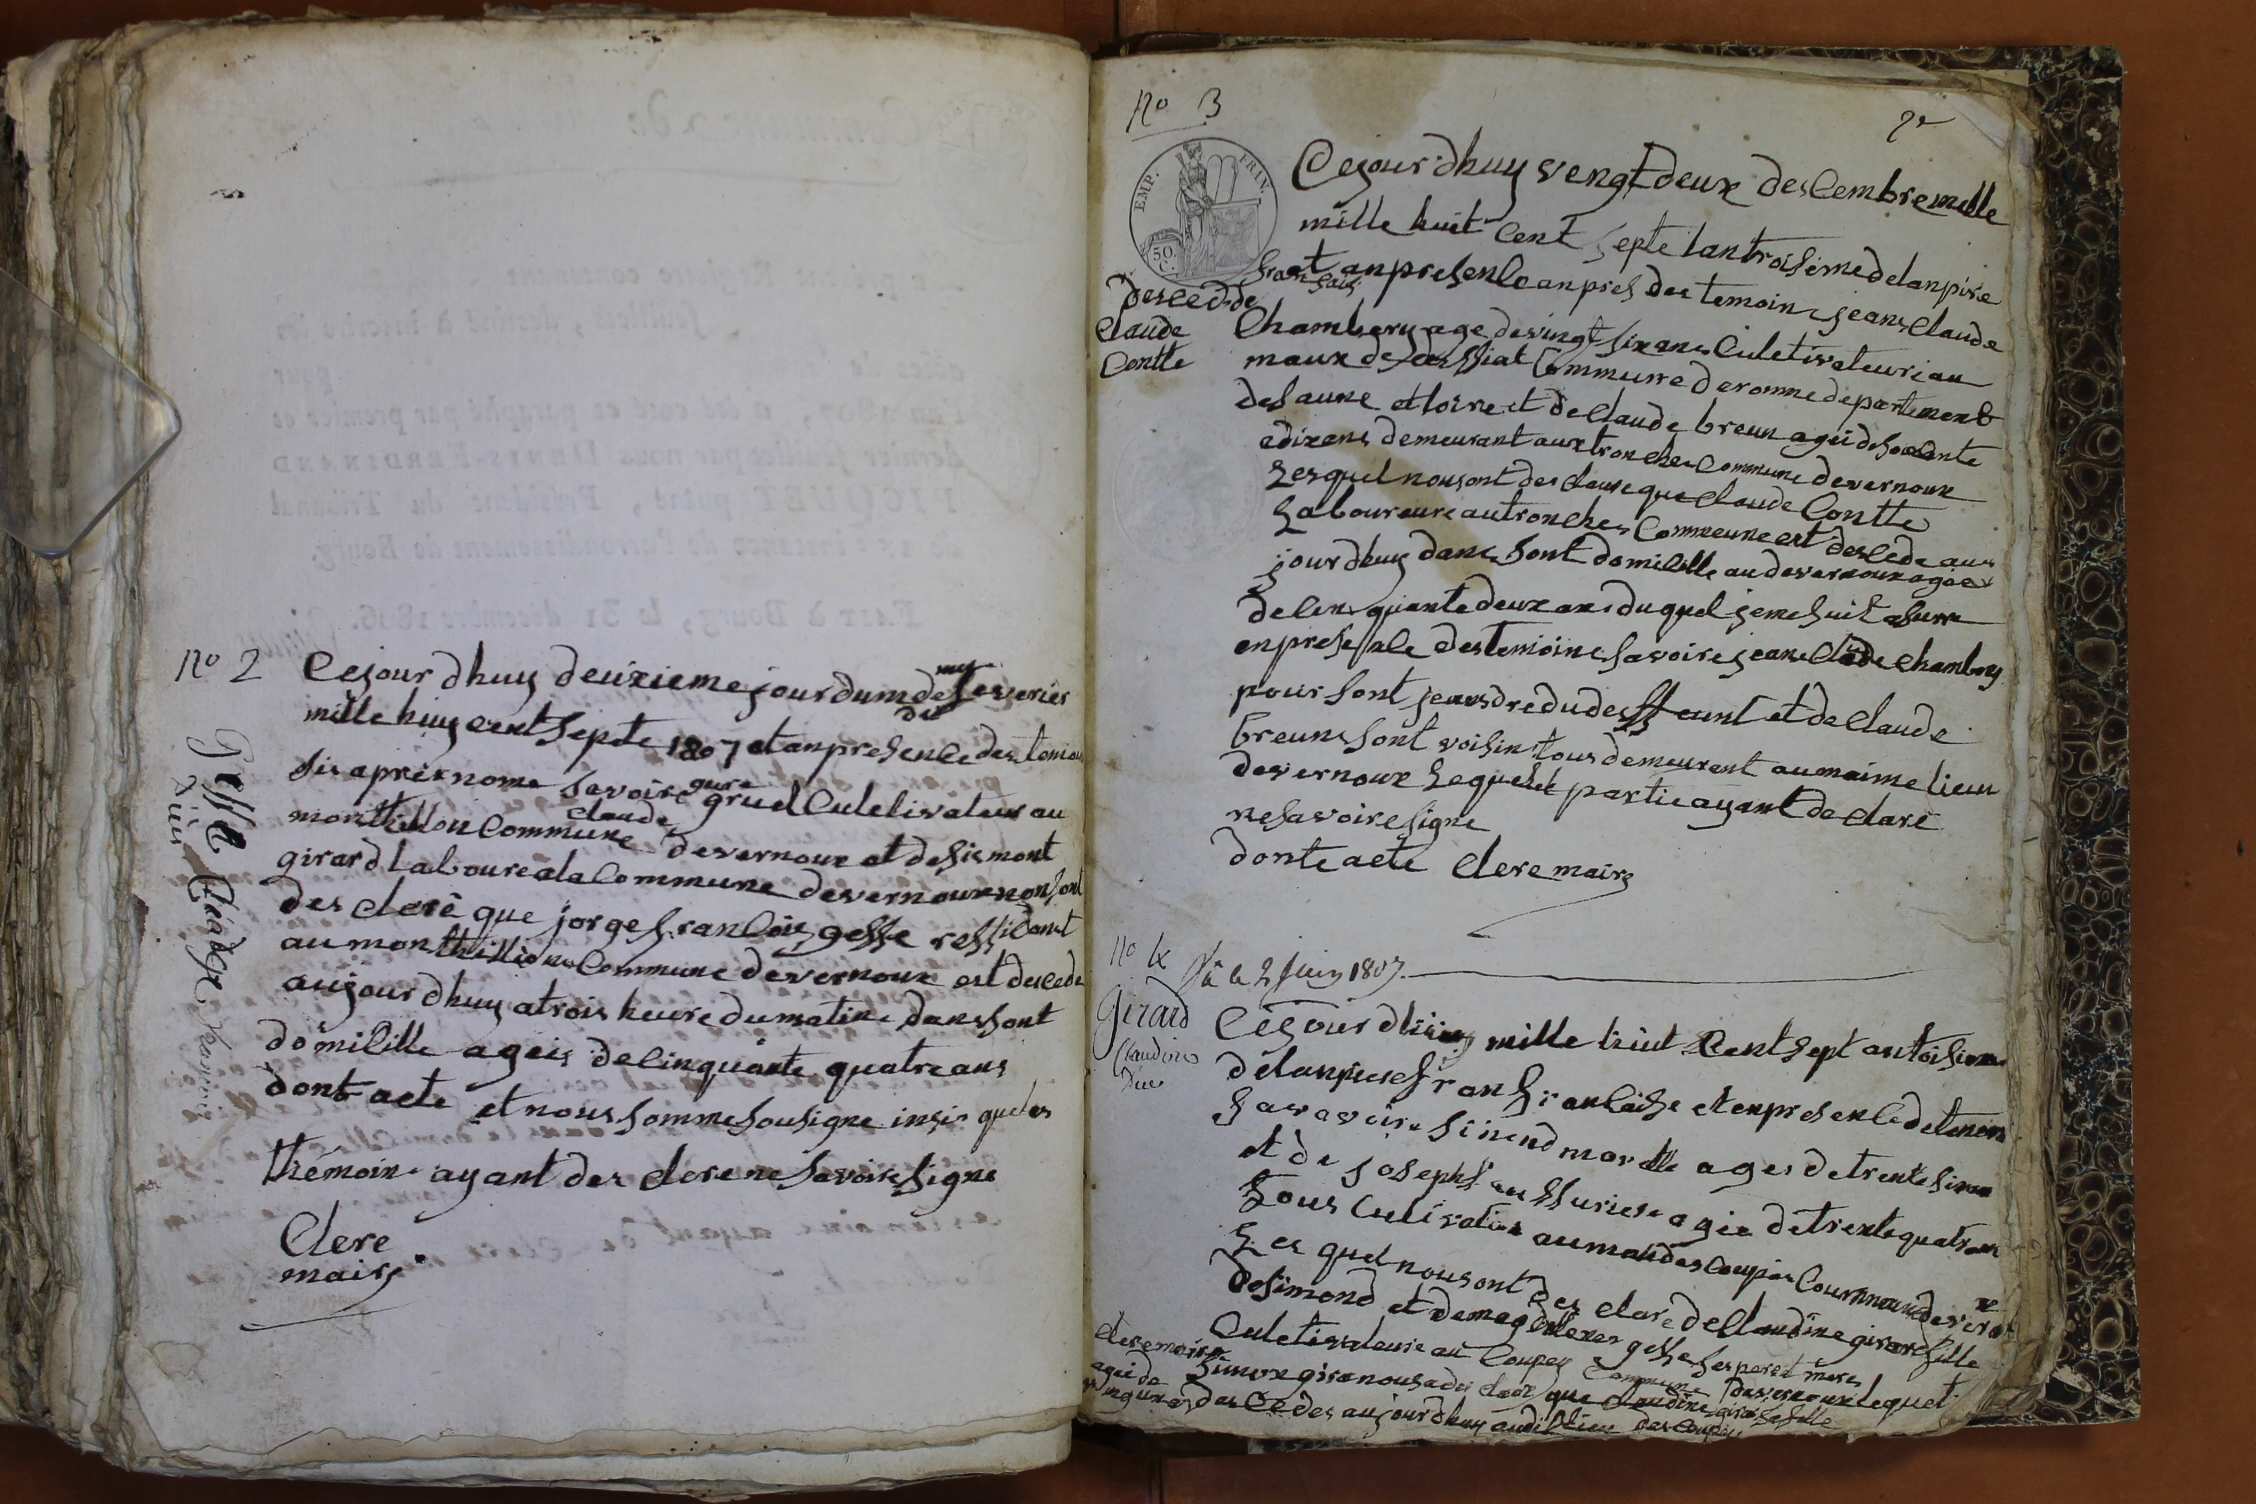 No 2
Cejour dhuy deuxieme jour dumdeferier
mille huy cent septe 1807 et anpresence des temoin
sis aprix nome savoire gruel Culetivateur au
monthillon Commune devernoux et desismont
claude
girard laboure a la Commune devernoux nonsont
des claré que jorge francois gesse ressidant
au monthillon Commune devernoux est descede
aujourdhuy atrois heure du matin dans sont
domicille ageis decinquante quatre ans
dont acte et nous somme sousigne insis que les
thémoin ayant des clere ne savoire signe
Clere
maire
gesse
No 3
2e
EMP. FRAN.
50 C.
Cejourdhuy vengt deux descembre mille
mille huit cent septe lantroisieme delanpire
fransais et anpresence anpres des temoin jean claude
Desced de
Claude
Contte
Chambery age devingt six ans Culetivateuri au
maux de Commune deromme departement
desaune et loire et de claude breun ageis desoecente
edixans demeurant aux tronches Commune devernoux
Lesquel nousont desclare que claude Contte
Laboureure autronches Commeune est descede au
jourdhuy dans sont domicille au devernoux agée
decinquante deux ans duquel jemesuit assure
enpresence destemoine savoire jean claude chambery
pour sont jeandre du deffeunt et de claude
breune sont voisin tous demeurent aumaime lieu
devernoux Lequelet partie ayant de claré
nesavoire signe
dont acte Clere maire
No 4
Vu le 2 juin 1807
Girard
Claudine
Cejourdhuy mille huit Cent sept antoisieme
delanpire francaise et enpresence detemoin
Savavoire simond morelle ages detrente sixans
et de joseph ageis detrente quatre ans
Tous Culivatier aumaudescoupés Coummune devernoux
Lesquel nousont des clare de Claudine girard fille
desimond et demagdelener gesse ses pere et mere
Culetivateure au Coupey Commune devernoux lequel
Simon gira nousade claré que claudine girar safille
descedes aujourdhuy audit lieu des coupey
ageé de
clere maire